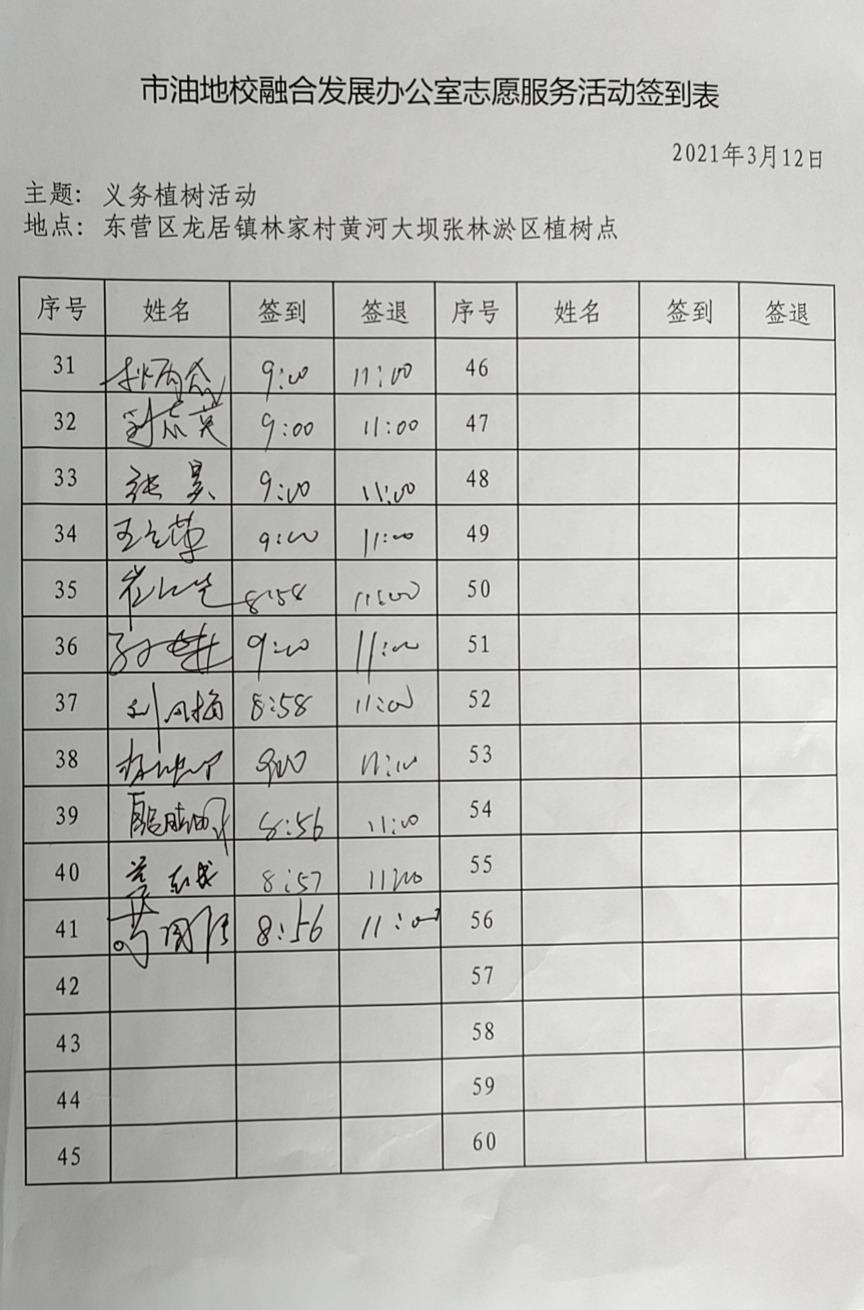 市油地校融合发展办公室志愿服务活动签到表
2021年3月12日
主题：义务植树活动
地点：东营区龙居镇林家村黄河大坝张林淤区植树点
序号 姓名 签到 签退 序号 姓名 签到 签退
31 9:00 11:00 46
32 刘志英 9:00 11:00 47
33 张昊 9:00 11:00 48
34 王立荣 9:00 11:00 49
35 8:58 11:00 50
36 9:00 11:00 51
37 刘风梅 8:58 11:00 52
38 9:00 11:00 53
39 8:56 11:00 54
40 8:57 11:00 55
41 8:56 11:00 56
42 57
43 58
44 59
45 60